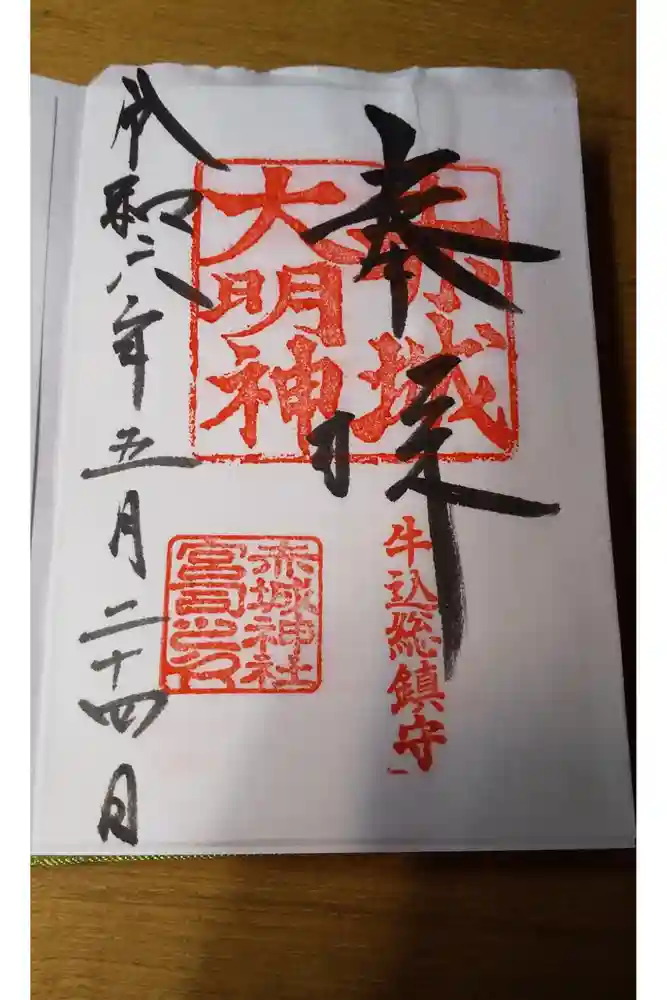 奉拝
赤城
大明神
牛込総鎮守
赤城神社
宮司之印
令和六年五月二十四日